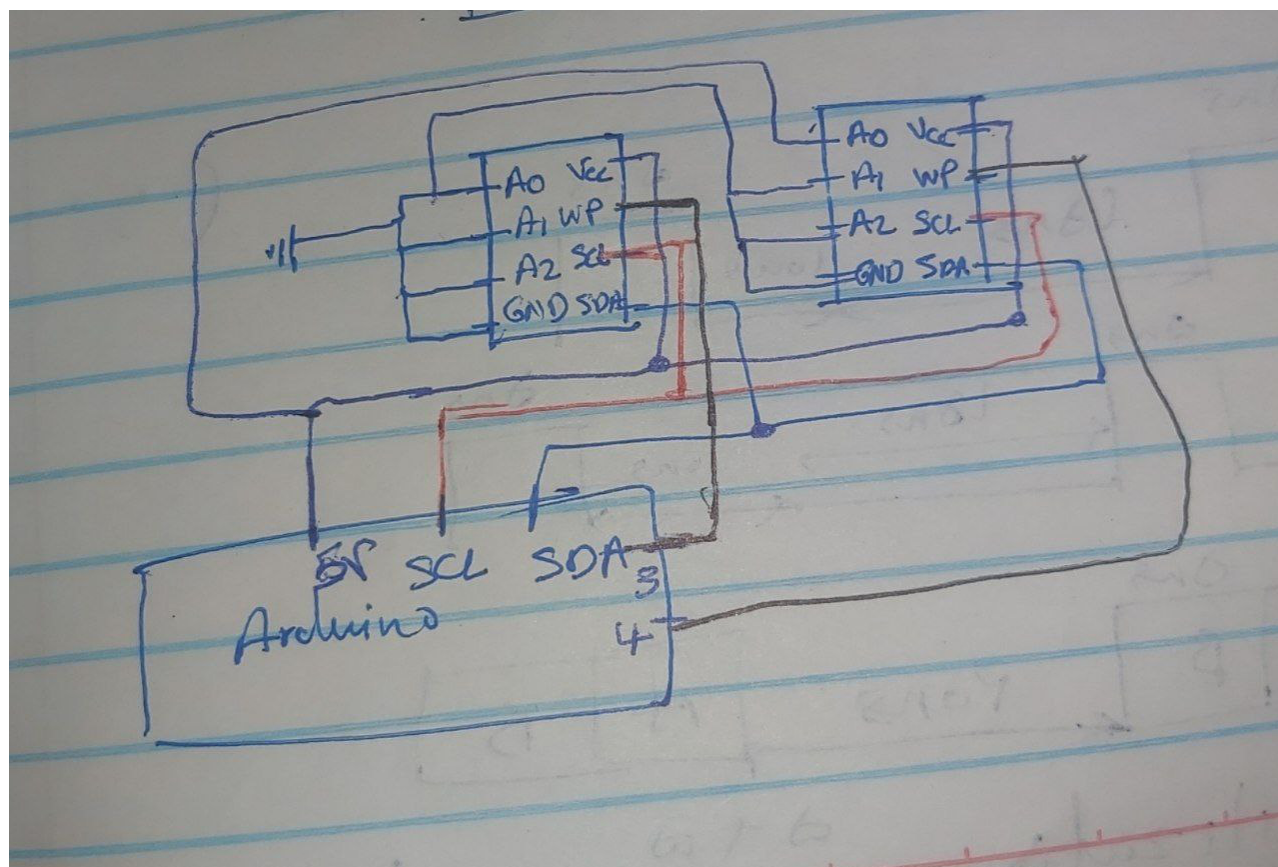 A0 Vcc
A1 WP
A2 SCL
GND SDA
A0 Vcc
A1 WP
A2 SCL
GND SDA
5V SCL SDA
3
Arduino
4